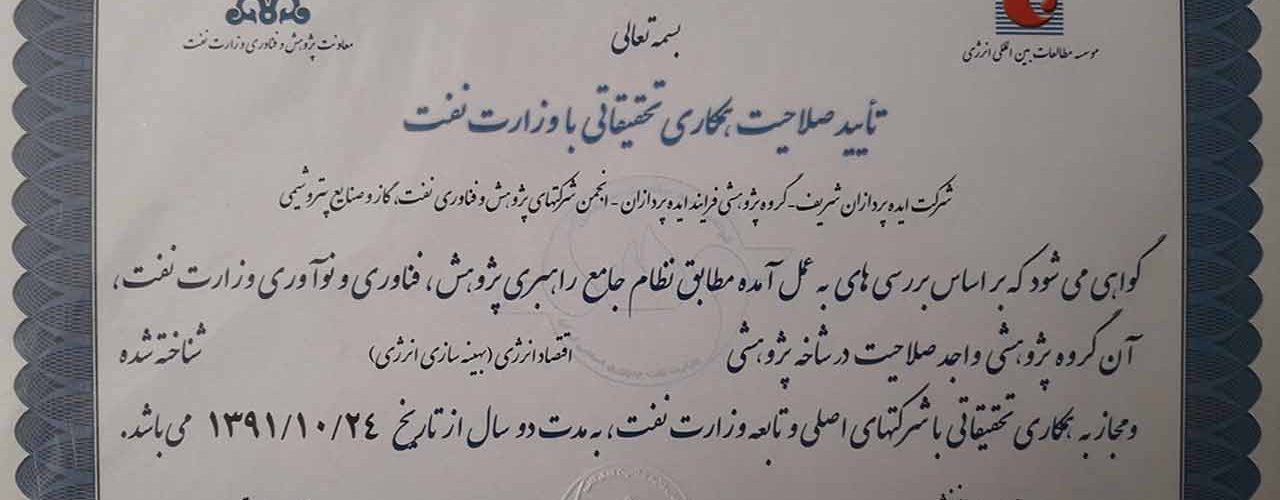 بسمه تعالی
موسسه مطالعات بین المللی انرژی
معاونت پژوهش و فناوری وزارت نفت
تأیید صلاحیت همکاری تحقیقاتی با وزارت نفت
شرکت ایده پردازان شریف - گروه پژوهشی فرایند ایده پردازان - انجمن شرکتهای پژوهش و فناوری نفت، گاز و صنایع پتروشیمی
گواهی می شود که بر اساس بررسی های به عمل آمده مطابق نظام جامع راهبری پژوهش، فناوری و نوآوری وزارت نفت،
آن گروه پژوهشی واجد صلاحیت در شاخه پژوهشی اقتصاد انرژی (بهینه سازی انرژی) شناخته شده
و مجاز به همکاری تحقیقاتی با شرکتهای اصلی و تابعه وزارت نفت، به مدت دو سال از تاریخ ۱۳۹۱/۱۰/۲۴ می باشد.